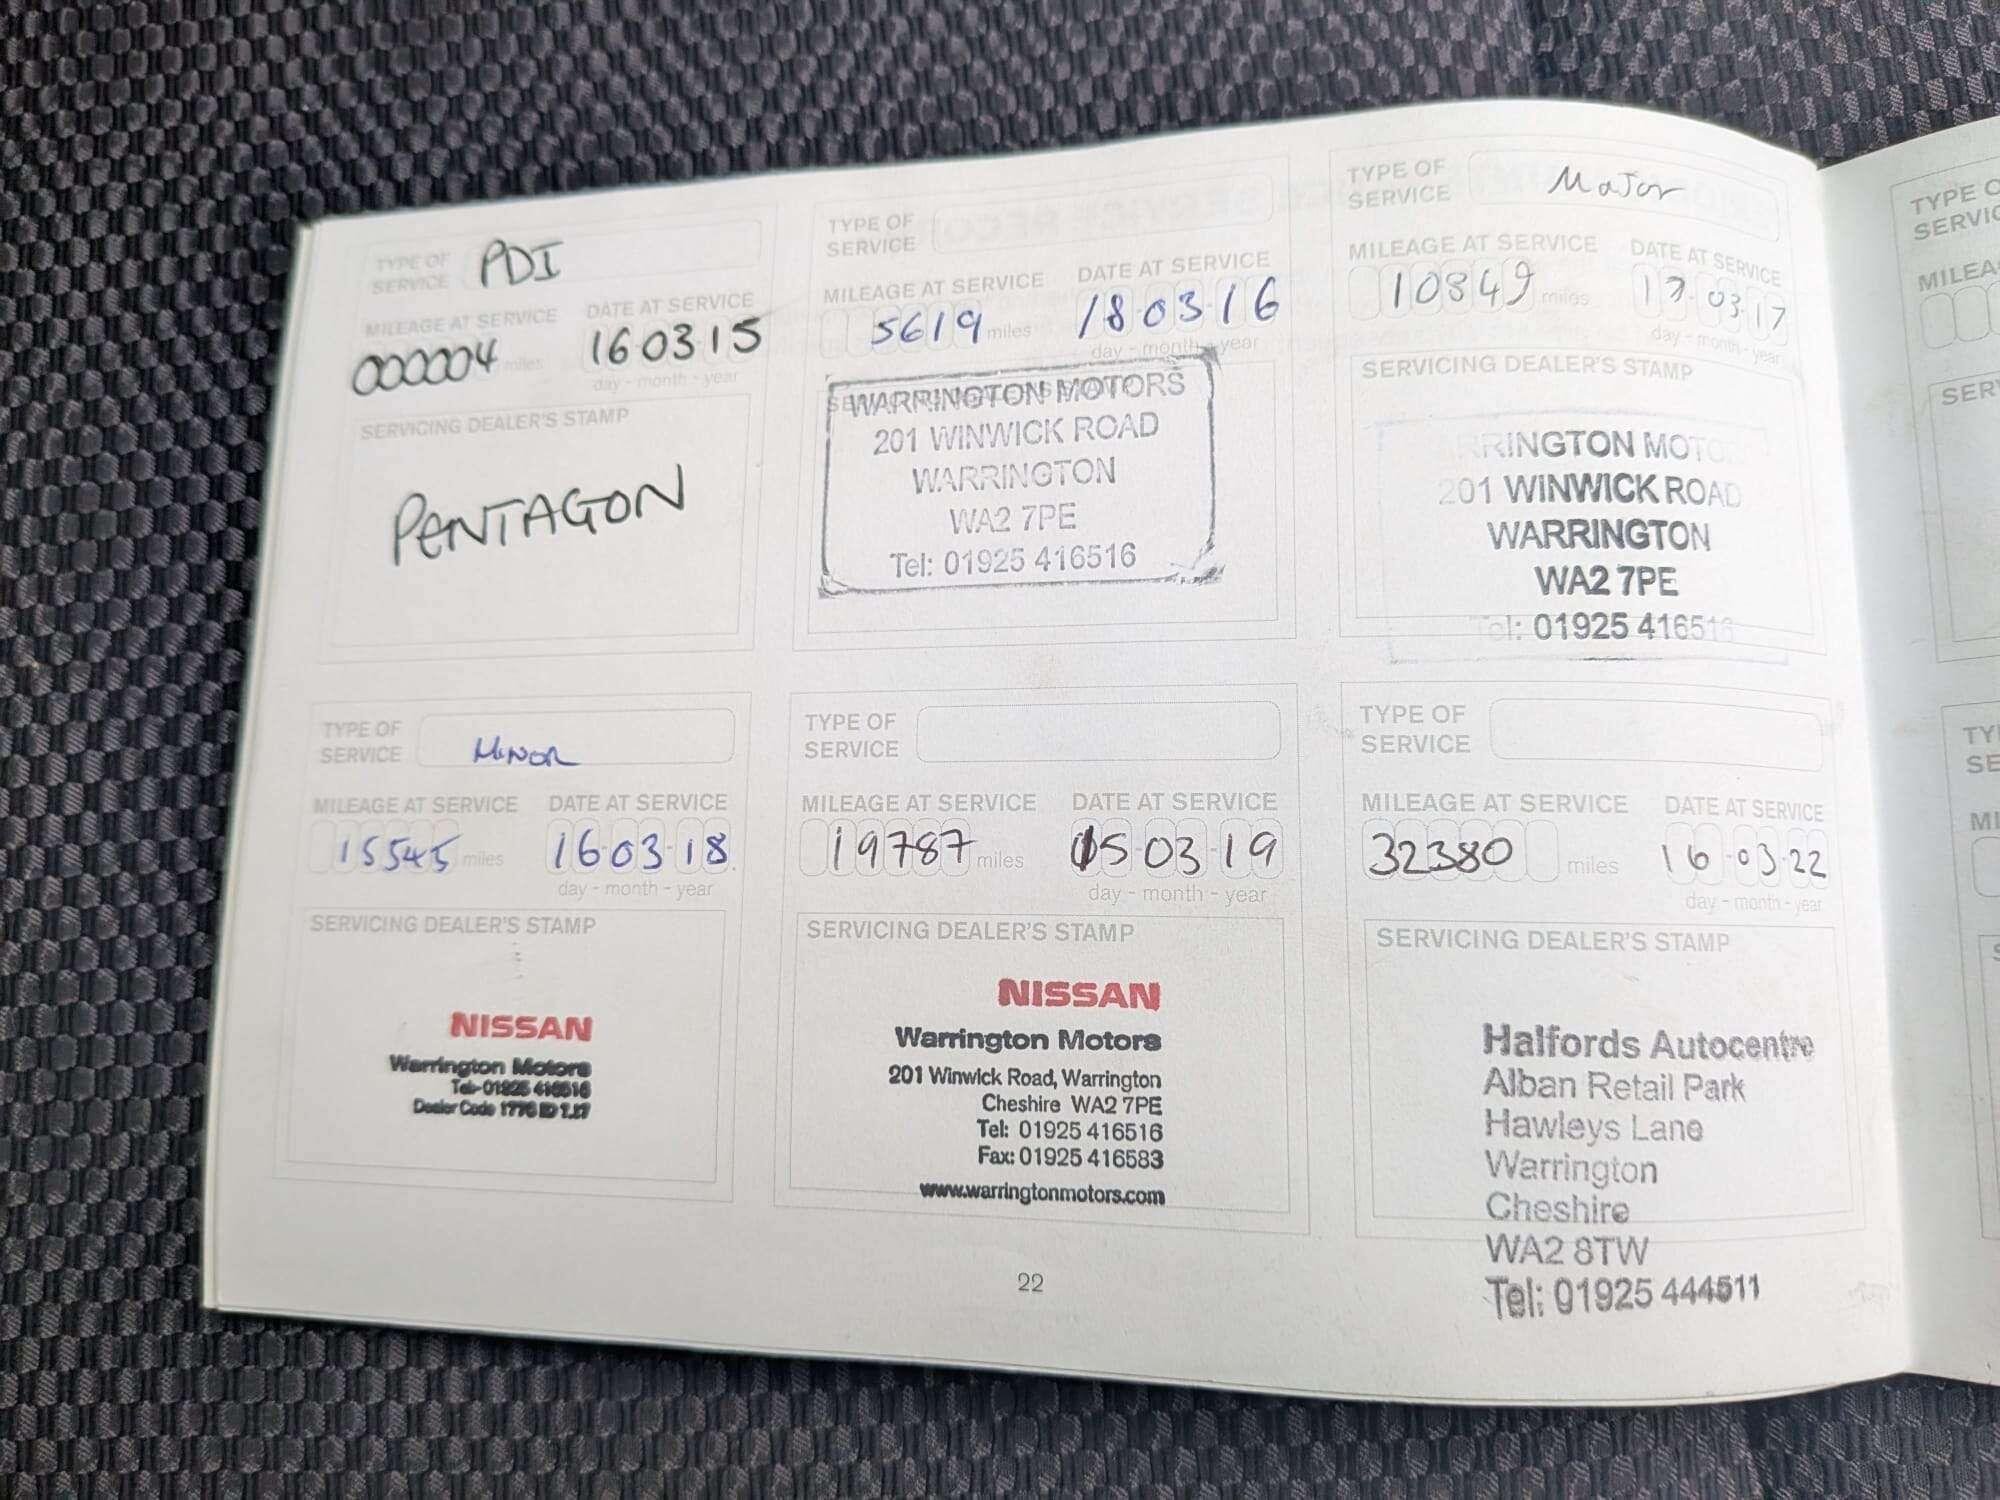 TYPE OF
SERVICE PDI
MILEAGE AT SERVICE DATE AT SERVICE
000004 miles 16 03 15
day - month - year
SERVICING DEALER'S STAMP
PENTAGON
TYPE OF
SERVICE
MILEAGE AT SERVICE DATE AT SERVICE
5619 miles 18 03 16
day - month - year
WARRINGTON MOTORS
201 WINWICK ROAD
WARRINGTON
WA2 7PE
Tel: 01925 416516
TYPE OF
SERVICE Major
MILEAGE AT SERVICE DATE AT SERVICE
10849 miles 17 03 17
day - month - year
SERVICING DEALER'S STAMP
WARRINGTON MOTORS
201 WINWICK ROAD
WARRINGTON
WA2 7PE
Tel: 01925 416516
TYPE OF
SERVICE MINOR
MILEAGE AT SERVICE DATE AT SERVICE
15545 miles 16 03 18
day - month - year
SERVICING DEALER'S STAMP
NISSAN
Warrington Motors
Tel- 01925 416516
Dealer Code
TYPE OF
SERVICE
MILEAGE AT SERVICE DATE AT SERVICE
19787 miles 05 03 19
day - month - year
SERVICING DEALER'S STAMP
NISSAN
Warrington Motors
201 Winwick Road, Warrington
Cheshire WA2 7PE
Tel: 01925 416516
Fax: 01925 416583
www.warringtonmotors.com
TYPE OF
SERVICE
MILEAGE AT SERVICE DATE AT SERVICE
32380 miles 16 03 22
day - month - year
SERVICING DEALER'S STAMP
Halfords Autocentre
Alban Retail Park
Hawleys Lane
Warrington
Cheshire
WA2 8TW
Tel: 01925 444511
22
TYPE